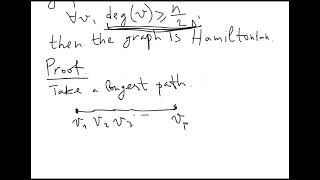 ∀v, deg(v) ≥ n/2,
then the graph is Hamiltonian.
Proof
Take a longest path.
v₁ v₂ v₃ ... vₚ